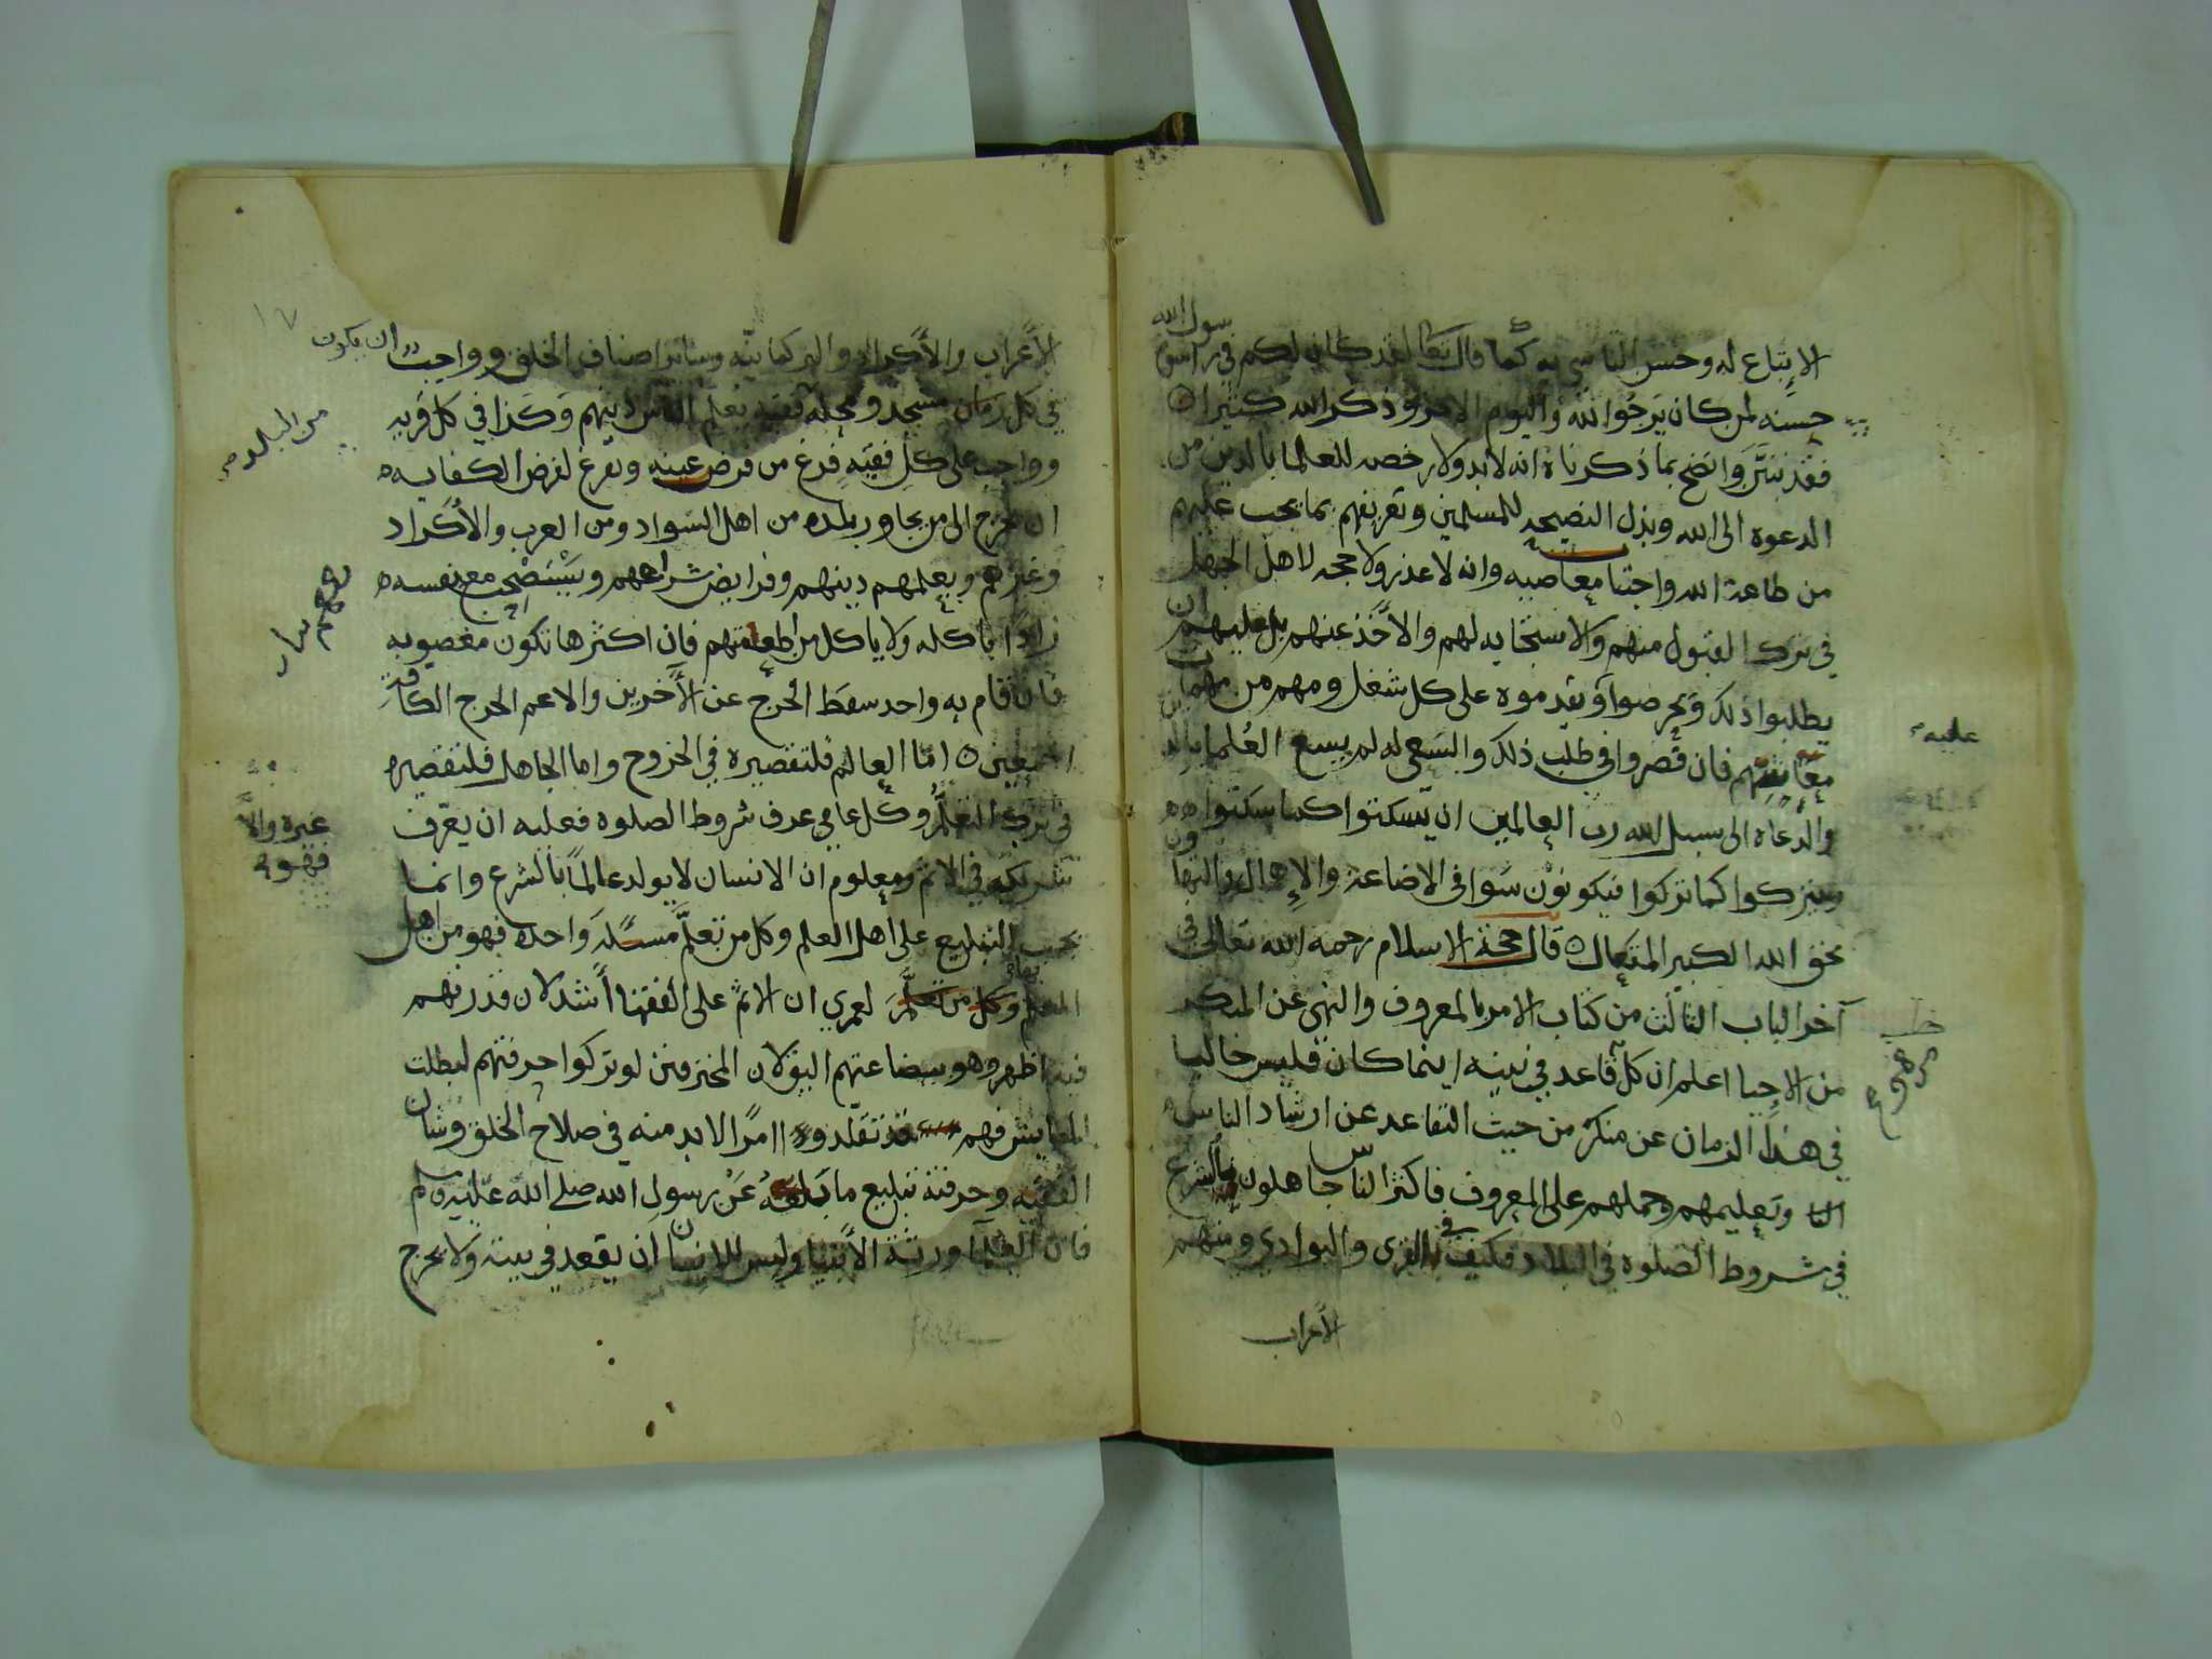 الاتباع له وحسن التاسي به كما قال تعالى لقد كان لكم في رسول الله اسوة
حسنه لمن كان يرجوا الله واليوم الاخر وذكر الله كثيرا
فقد تبيّن واتضح بما ذكرناه انه لا بد ولا رخصه للعلما بالدين من
الدعوه الى الله وبذل النصيحه للمسلمين وتعريفهم بما يجب عليهم
من طاعة الله واجتناب معاصيه وانه لا عذر ولا حجه لاهل الجهل
في ترك القبول منهم والاستجابه لهم والاخذ عنهم بل عليهم ان
يطلبوا ذلك ويحرصوا ويقدموه على كل شغل ومهم من مهمات
معايشهم فان قصروا في طلب ذلك والسعي له لم يسع العلما بالله
والدعاه الى سبيل الله رب العالمين ان يسكتوا كما سكتوا
ويتركوا كما تركوا فيكونون سوا في الاضاعة والاهمال والتهاون
بحق الله الكبير المتعال قال حجة الاسلام رحمه الله تعالى في
آخر الباب الثالث من كتاب الامر بالمعروف والنهي عن المنكر
من الاحيا اعلم ان كل قاعد في بيته اينما كان فليس خاليا
في هذا الزمان عن منكر من حيث التقاعد عن ارشاد الناس
وتعليمهم وحملهم على المعروف فاكثر الناس جاهلون بالشرع
في شروط الصلوه في البلاد فكيف في القرى والبوادي ومنهم
الاعراب
عليه
الاعراب والاكراد والتركمانيّه وسائر اصناف الخلق وواجب ان يكون
في كل مسجد ومحله فقيه يعلم الناس دينهم وكذا في كل قريه
من البلد
وواجب على كل فقيه فرغ من فرض عينه وتفرغ لفرض الكفايه
ان يخرج الى من يجاور بلده من اهل السواد ومن العرب والاكراد
وغيرهم ويعلمهم دينهم وفرايض شرعهم ويستصحب مع نفسه
زادًا ياكله ولا ياكل من اطعمتهم فان اكثرها تكون مغصوبه
فان قام به واحد سقط الحرج عن الآخرين والا عم الحرج الكافه
اجمعين اما العالم فلتقصيره في الخروج واما الجاهل فلتقصيره
في ترك التعلم وكل عامي عرف شروط الصلوه فعليه ان يعرّف
غيره والّا
فهو
شريكه في الاثم ومعلوم ان الانسان لا يولد عالمًا بالشرع وانما
يجب التبليغ على اهل العلم وكل من تعلّم مسئلة واحده فهو من اهل
العلم بها لعمري ان الاثم على الفقها اشد لان قدرتهم
فيه اظهر وهو بصناعتهم اليق لان المحترفين لو تركوا حرفتهم لبطلت
المعايش فهم قد تقلدوا امرًا لا بد منه في صلاح الخلق وشان
الفقيه وحرفته تبليغ ما بلغه عن رسول الله صلى الله عليه وسلم
فان العلمآ ورثة الانبيا وليس للانسان ان يقعد في بيته ولا يخرج
١٧